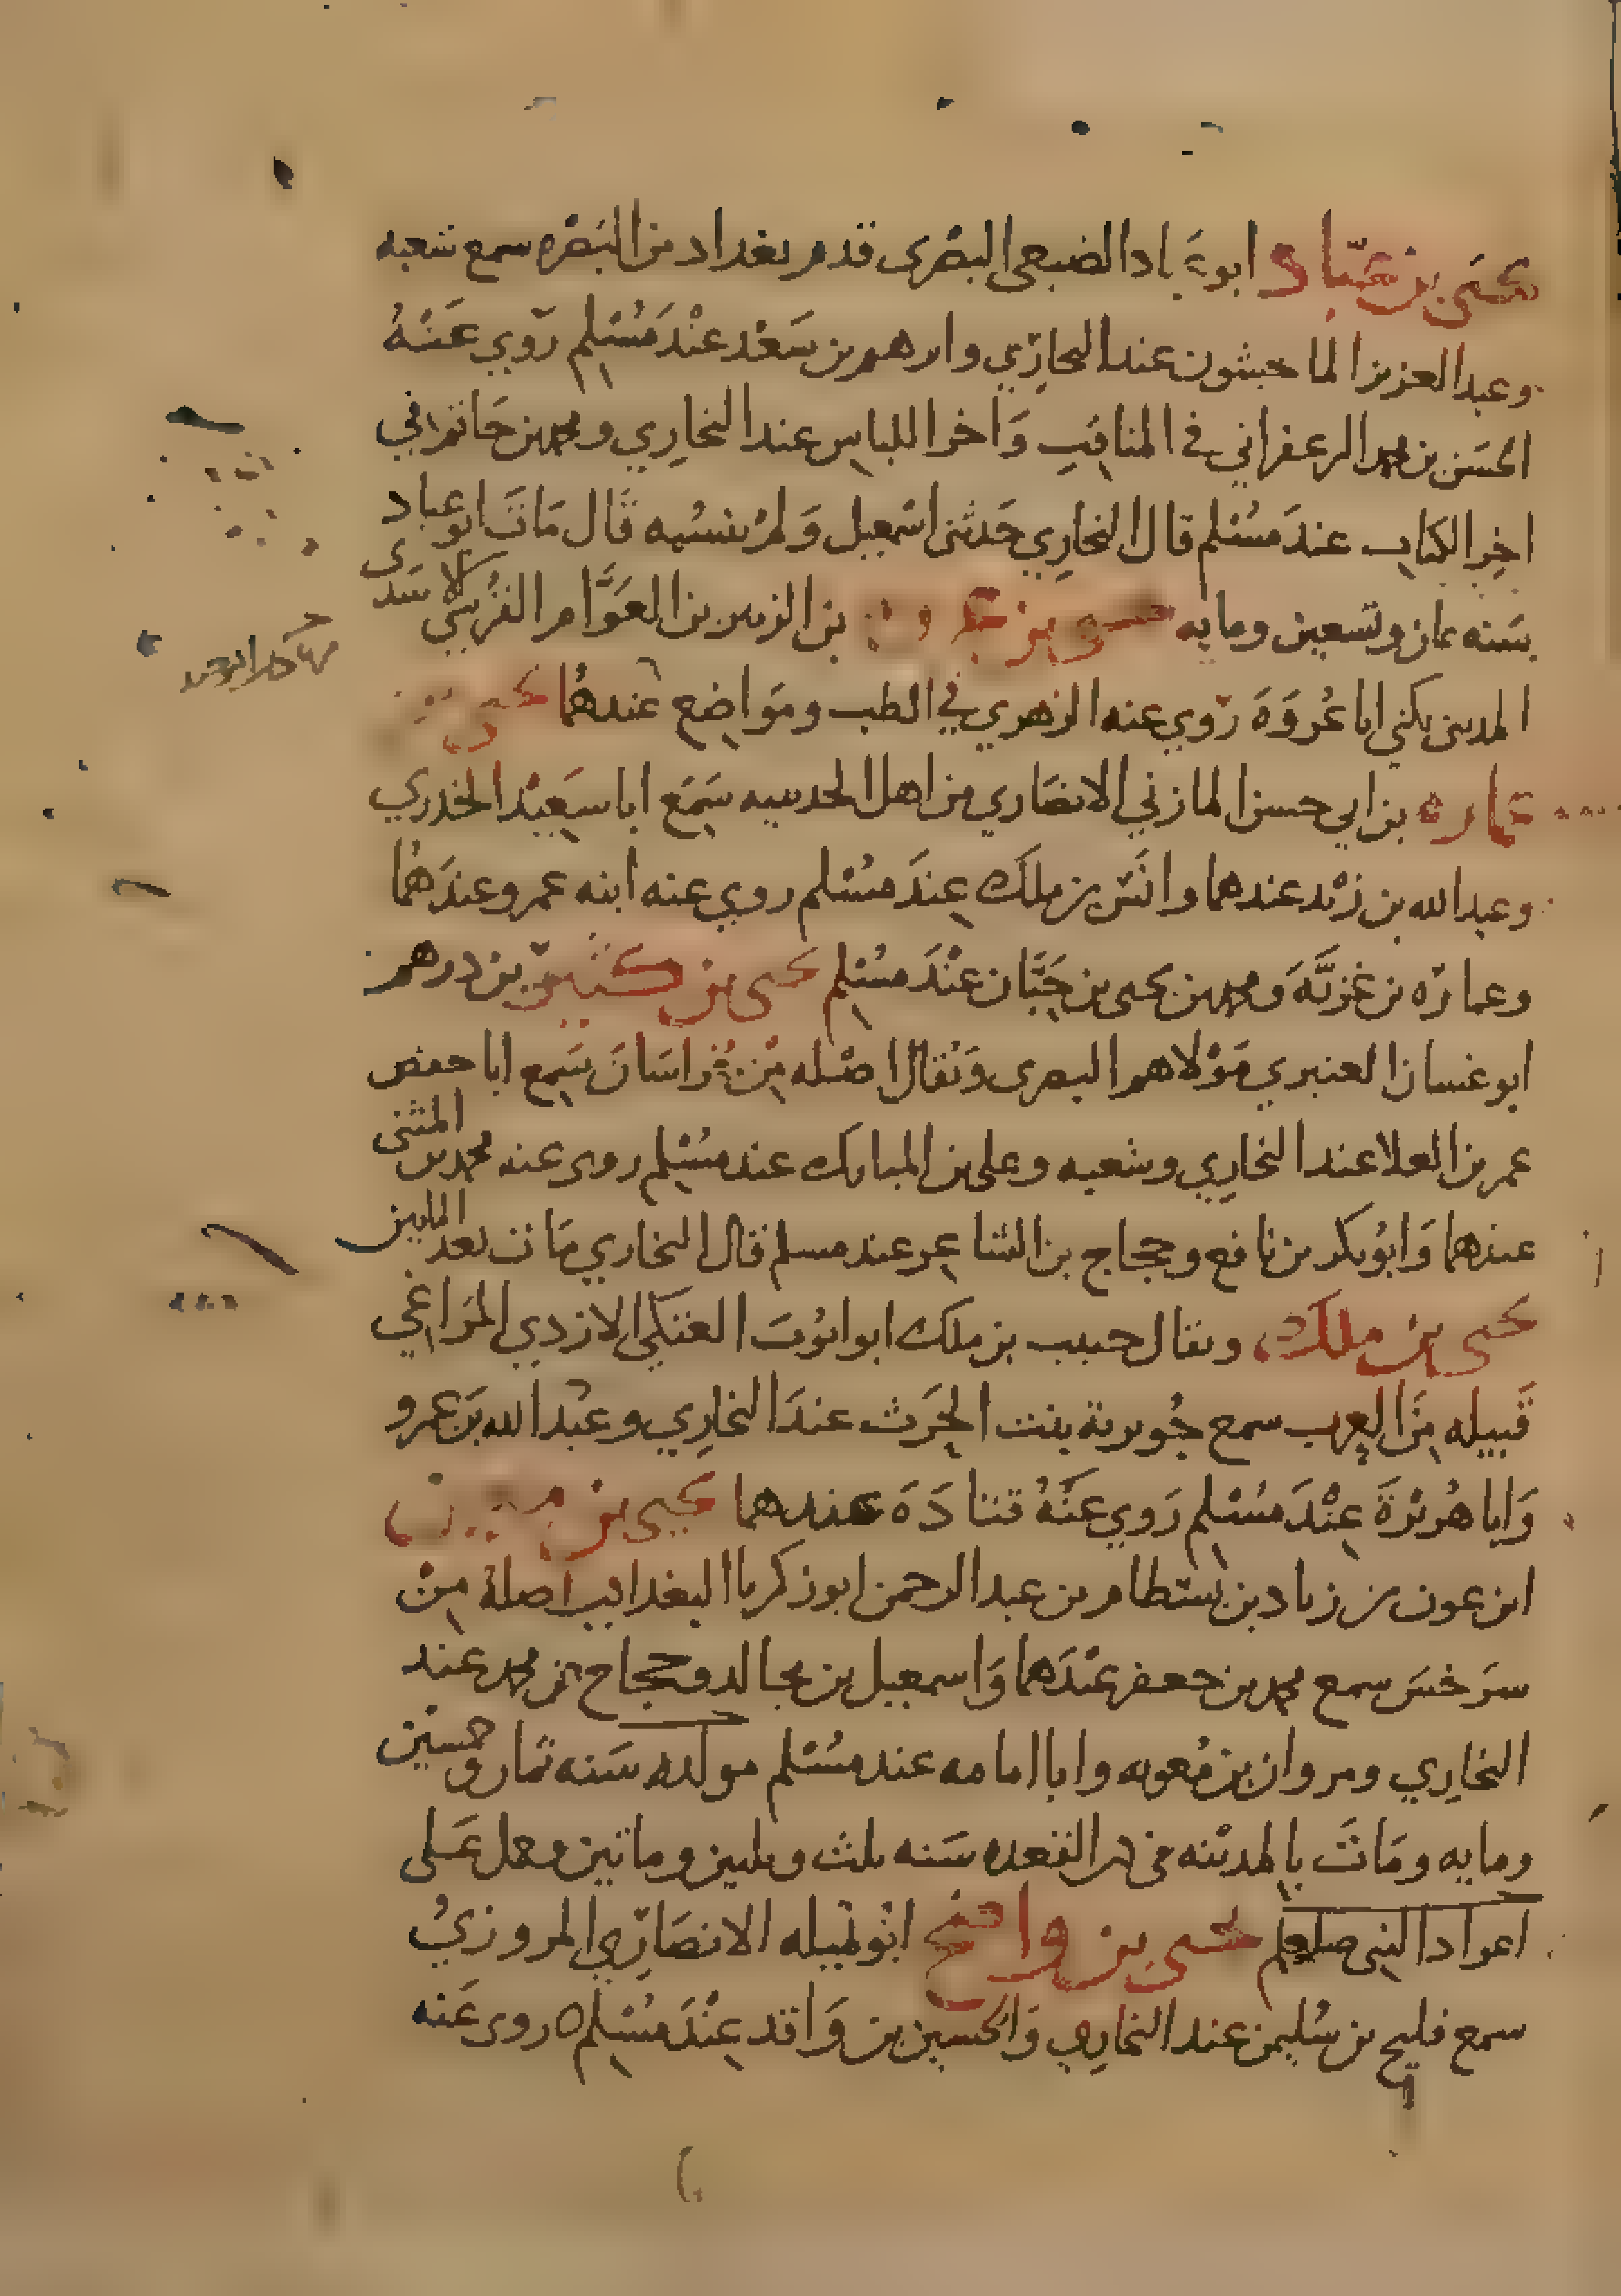 يحيى بن عباد ابو عباد الضبعي البصرى قدم بغداد من البصره سمع شعبه
وعبد العزيز الماجشون عند البخاري وابرهيم بن سعد عند مسلم روي عنه
الحسن بن محمد الزعفراني في المناقب واخر اللباس عند البخاري ومحمد بن حاتم في
اخر الكتاب عند مسلم قال البخاري حدثني اسمعيل ولم ينسبه قال مات ابو عباد
سنه ثمان وتسعين ومايه يحيى بن عروه بن الزبير بن العوام القرشي الاسدى
المديني يكني ابا عروة روي عنه الزهري في الطب ومواضع عندهما يحيى بن
عماره بن ابي حسن المازني الانصاري من اهل الحديبيه سمع ابا سعيد الخدري
وعبد الله بن زيد عندهما وانس بن ملك عند مسلم روي عنه ابنه عمرو عندهما
وعمارة بن غزية ومحمد بن يحيى بن حبان عند مسلم يحيى بن كثير بن درهم
ابو غسان العنبري مولاهم البصرى ويقال اصله من خراسان سمع ابا حفص
عمر بن العلا عند البخاري وشعبه وعلي بن المبارك عند مسلم روى عنه محمد بن المثنى
عندهما وابو بكر بن نافع وحجاج بن الشاعر عند مسلم قال البخاري مات بعد المايتين
يحيى بن ملك ويقال حبيب بن ملك ابو ايوب العتكي الازدي المراغي
قبيله من العرب سمع جويرية بنت الحرث عند البخاري وعبد الله بن عمرو
وابا هريرة عند مسلم روي عنه قتادة عندهما يحيى بن معين
ابن عون بن زياد بن بسطام بن عبد الرحمن ابو زكريا البغدادي اصله من
سرخس سمع محمد بن جعفر عندهما واسمعيل بن مجالد وحجاج بن محمد عند
البخاري ومروان بن معويه وابا اسامه عند مسلم مولده سنه ثمان وخمسين
ومايه ومات بالمدينه في ذي القعده سنه ثلث وثلثين وماتين وحمل على
اعواد النبي صلعم يحيى بن واضح ابو تميله الانصاري المروزي
سمع فليح بن سليمن عند البخاري والحسين بن واقد عند مسلم ه روى عنه